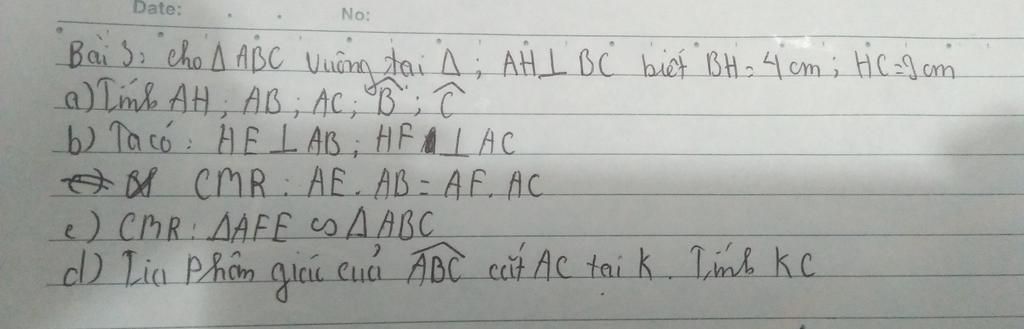 Date: . . No:
Bài 3: cho Δ ABC vuông tại Δ; AH⊥BC biết BH=4cm; HC=9cm
a) Tính AH; AB; AC; B̂; Ĉ
b) Ta có: HE⊥AB; HF⊥AC
CMR: AE.AB=AF.AC
c) CMR: ΔAFE ∽ ΔABC
d) Tia phân giác của ABC cắt AC tại K. Tính KC